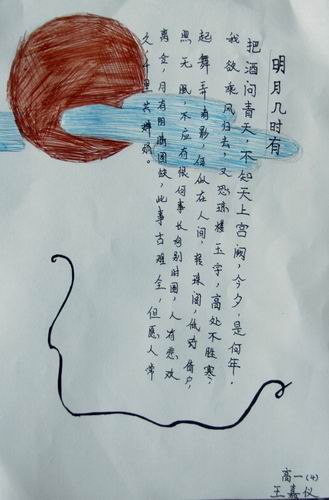 明月几时有
把酒问青天,不知天上宫阙,今夕,是何年.
我欲乘风归去,又恐琼楼玉宇,高处不胜寒,
起舞弄清影,何似在人间,转珠阁,低对倚户,
照无眠,不应有恨何事长向别时圆,人有悲欢
离合,月有阴晴圆缺,此事古难全,但愿人常
久,千里共婵娟。
高一(4)
王嘉仪